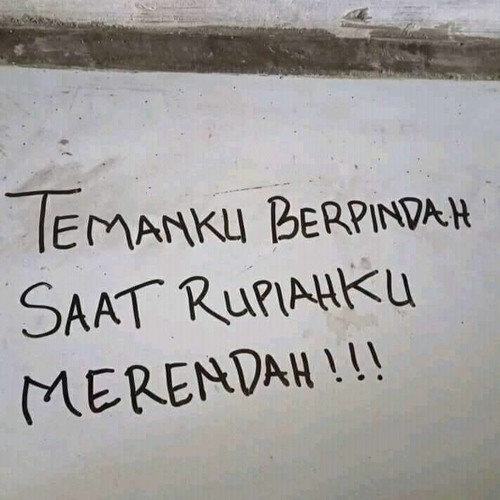 TEMANKU BERPINDAH
SAAT RUPIAHKU
MERENDAH!!!